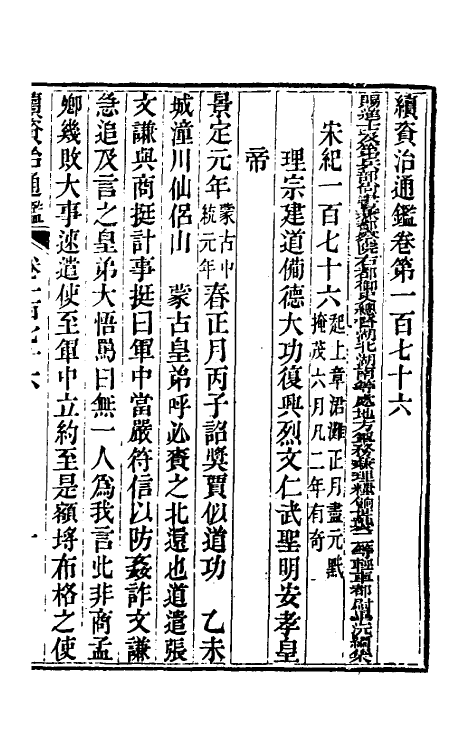 續資治通鑑卷第一百七十六
賜進士及第兵部尚書兼都察院右都御史總督湖北湖南等處地方軍務兼理糧餉世襲二等輕車都尉畢沅編集
宋紀一百七十六起上章涒灘正月盡元黓
掩茂六月凡二年有奇
理宗建道備德大功復興烈文仁武聖明安孝皇
帝
景定元年蒙古中統元年春正月丙子詔獎賈似道功　乙未
城潼川仙侶山　蒙古皇弟呼必賚之北還也道遣張
文謙與商挺計事挺曰軍中當嚴符信以防姦詐文謙
急追及言之皇弟大悟罵曰無一人爲我言此非商孟
卿幾敗大事速遣使至軍中立約至是額埒布格之使
續資治通鑑　卷一百七十六　一